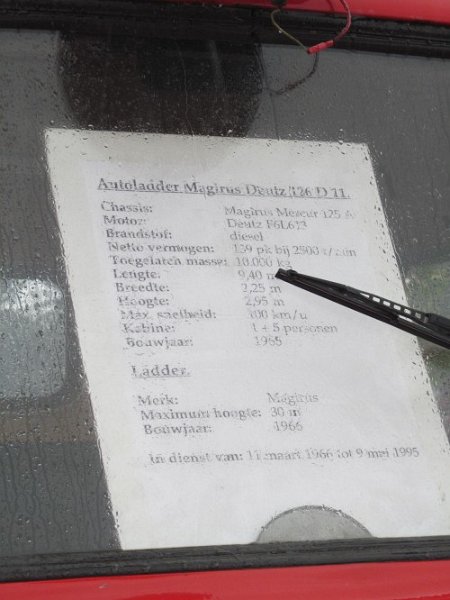 Autoladder Magirus Deutz 126 D 11.
Chassis: Magirus Mercur 125 A
Motor: Deutz F6L613
Brandstof: diesel
Netto vermogen: 139 pk bij 2500 t/min
Toegelaten masse: 10.000 kg
Lengte: 9,40 m
Breedte: 2,25 m
Hoogte: 2,95 m
Max. snelheid: 100 km/u
Kabine: 1 + 5 personen
Bouwjaar: 1965
Ladder.
Merk: Magirus
Maximum hoogte: 30 m
Bouwjaar: 1966
In dienst van: 11 maart 1966 tot 9 mei 1995